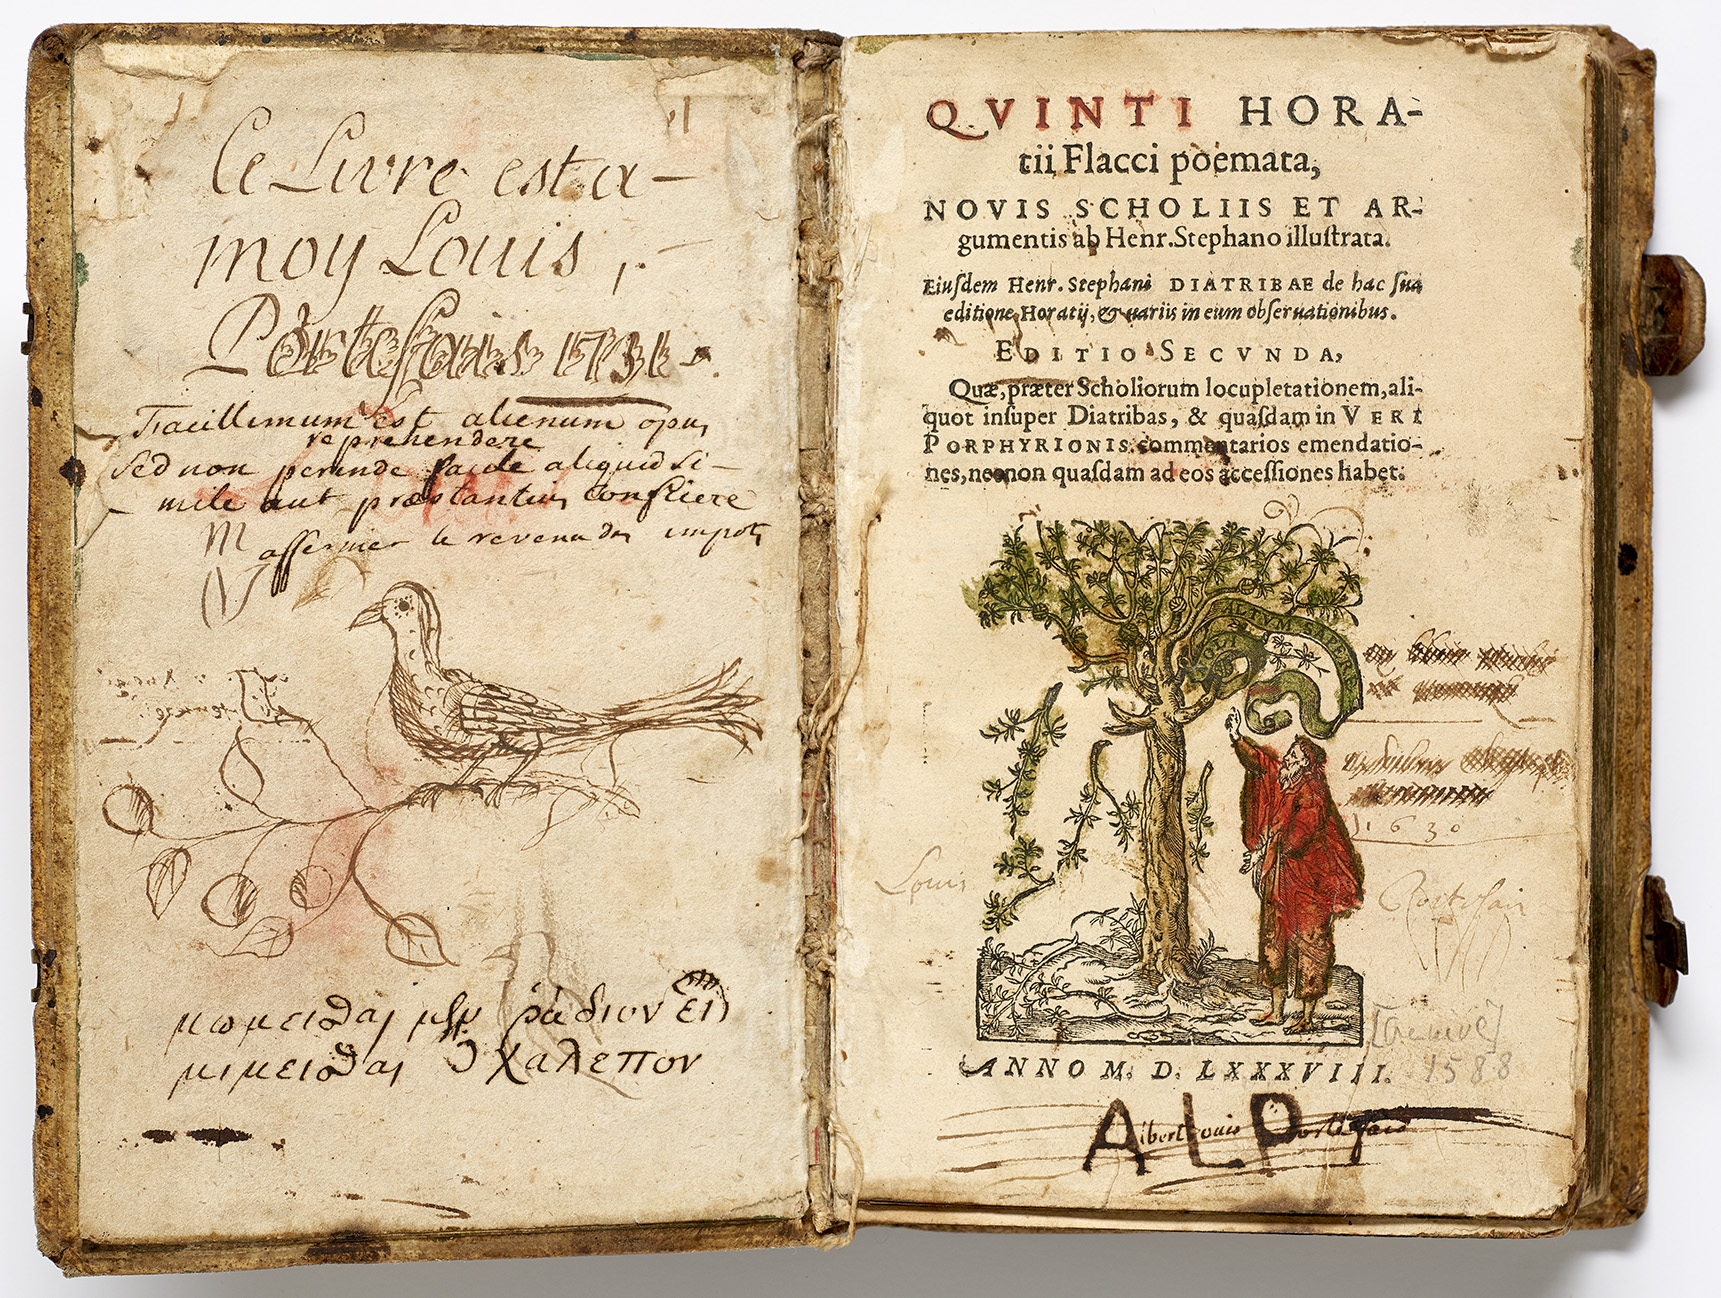 Ce Livre est a-
moy Louis,
Portefais 1731.
Facillimum est alienum opus
reprehendere
sed non perinde facile aliquid si-
mile aut præstantius conficere
M affermer le revenu des impots
μωμεῖσθαι μὲν ῥάδιον
μιμεῖσθαι δὲ χαλεπον
QVINTI HORA-
tii Flacci poemata,
NOVIS SCHOLIIS ET AR-
gumentis ab Henr. Stephano illuſtrata.
Eiuſdem Henr. Stephani DIATRIBAE de hac ſua
editione Horatij, & variis in eum obſeruationibus.
EDITIO SECVNDA,
Quæ, præter Scholiorum locupletationem, ali-
quot inſuper Diatribas, & quaſdam in VERI
PORPHYRIONIS commentarios emendatio-
nes, necnon quaſdam ad eos acceſſiones habet.
NOLI ALTVM SAPERE
1630
Louis
Portefais
[Geneve]
ANNO M. D. LXXXVIII. 1588
Albert Louis Portefais
ALP